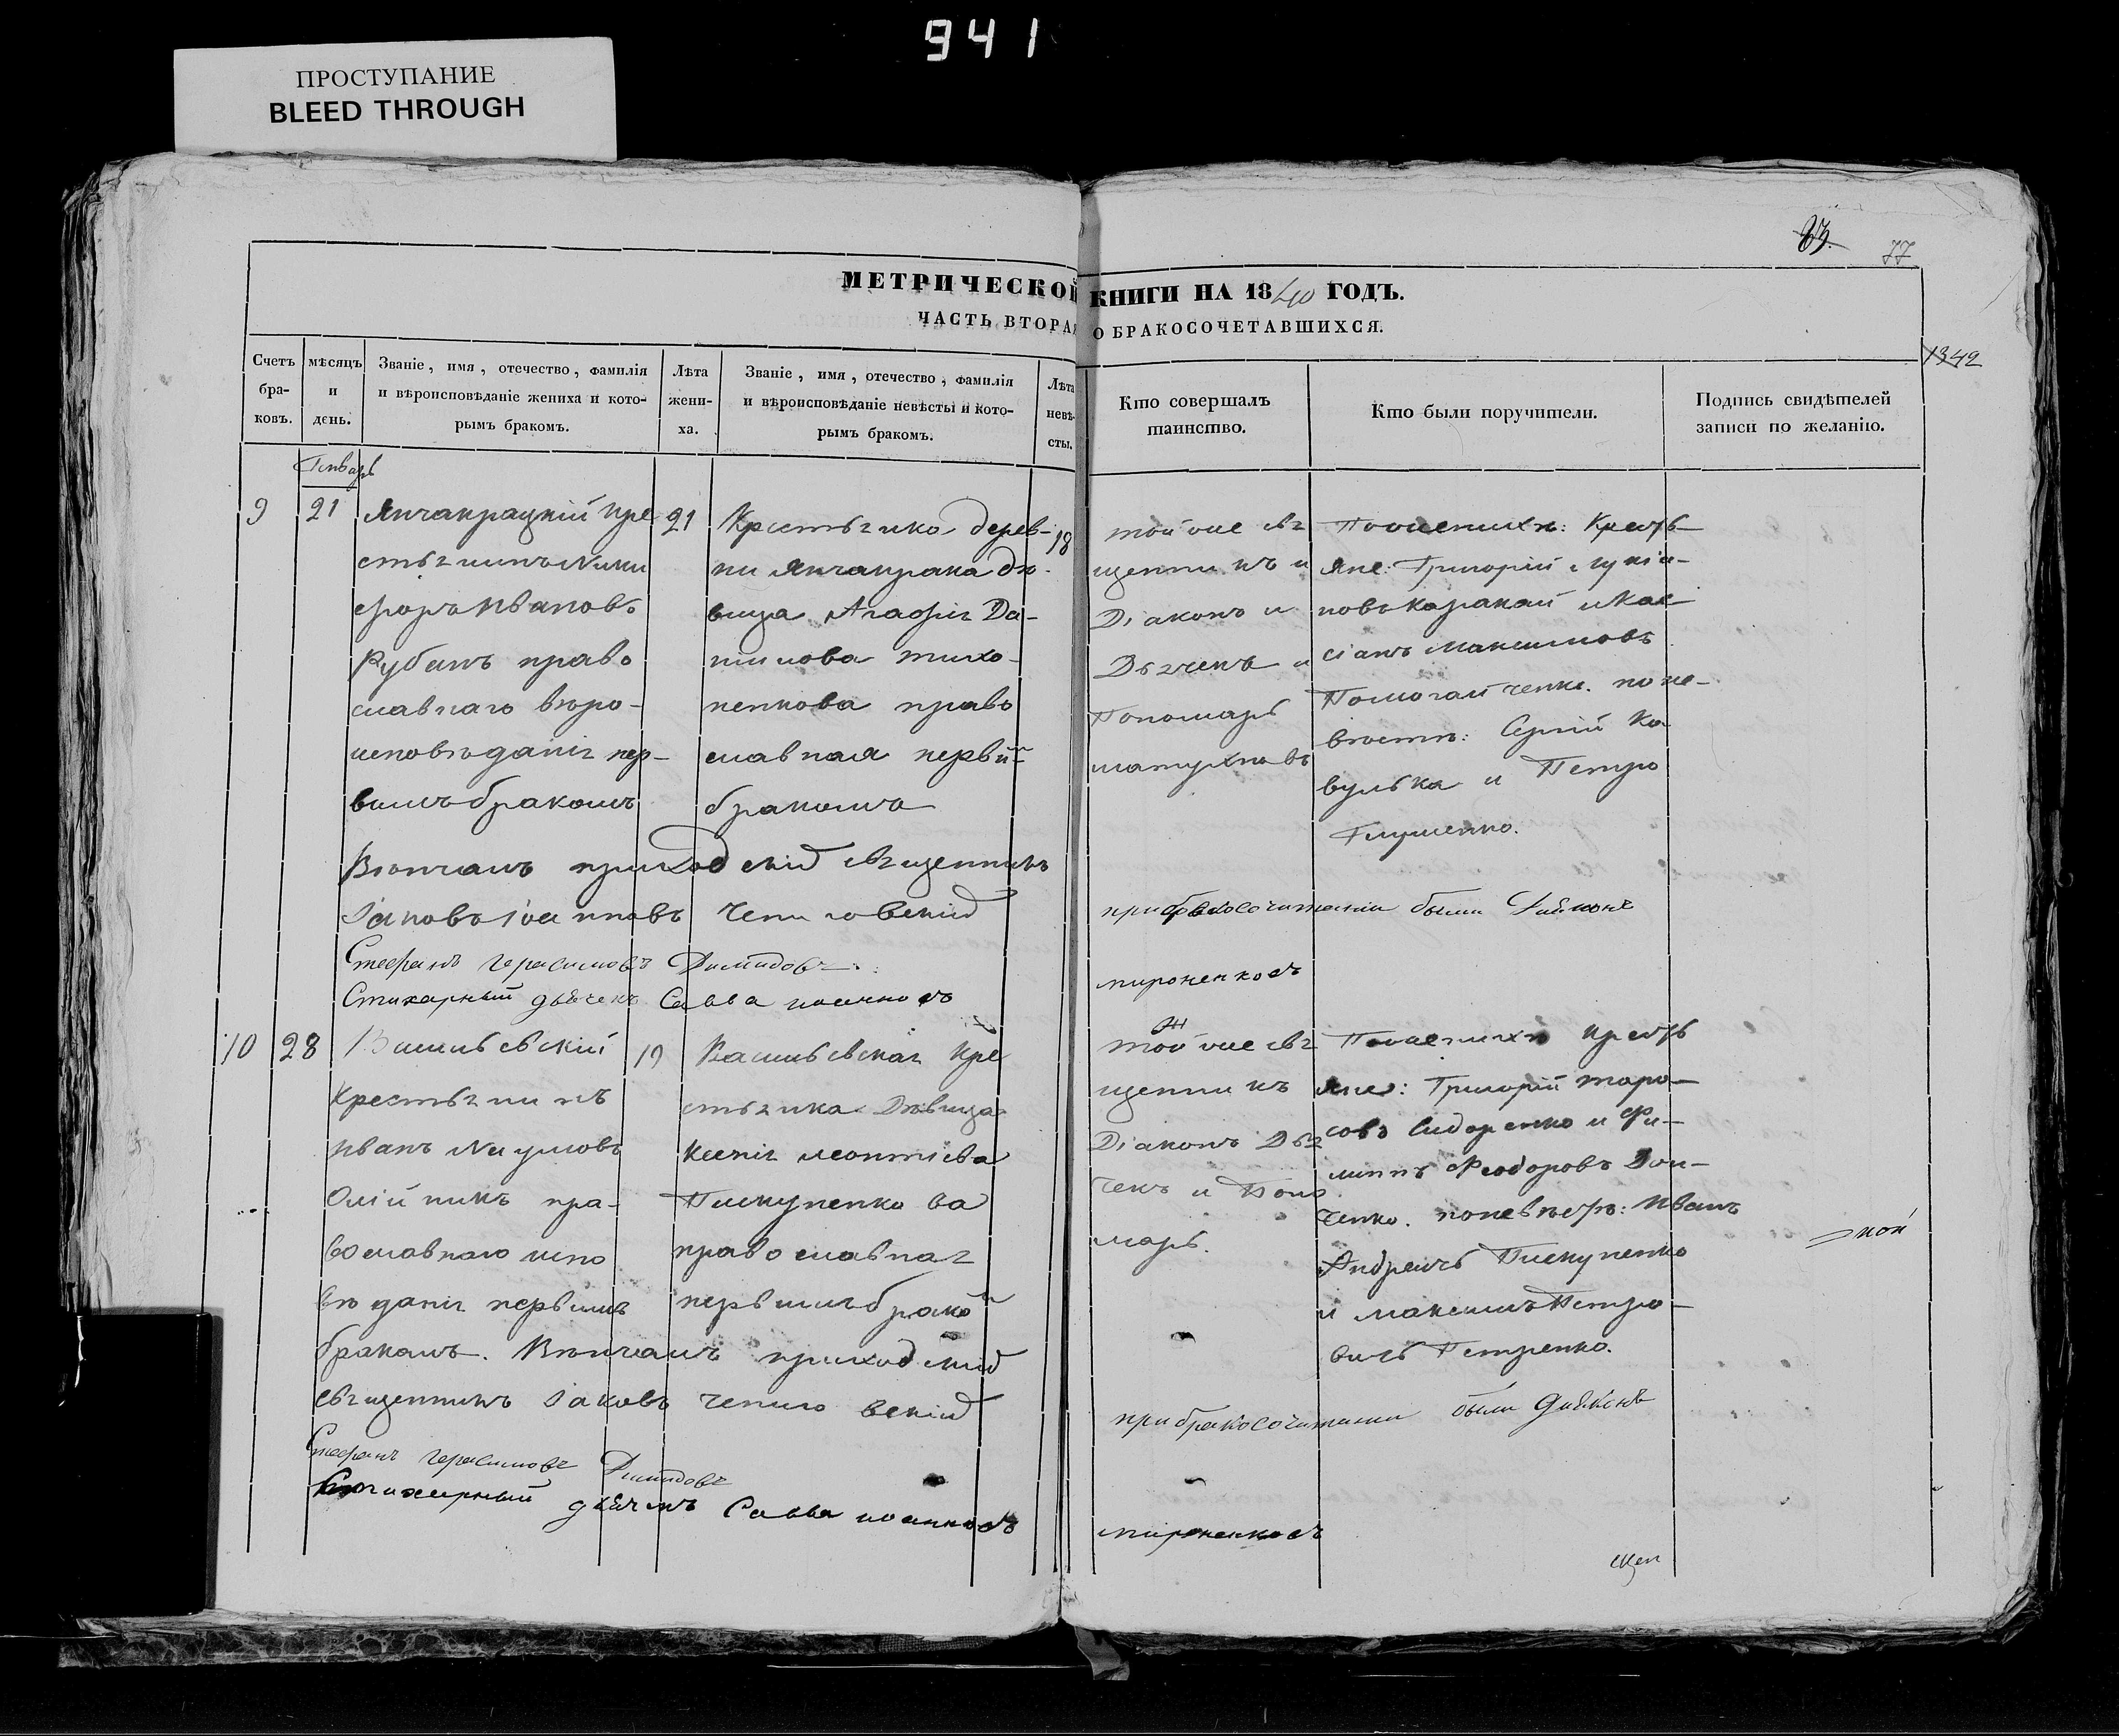 941
ПРОСТУПАНИЕ
BLEED THROUGH
77
МЕТРИЧЕСКОЙ КНИГИ НА 1840 ГОДЪ.
ЧАСТЬ ВТОРАЯ О БРАКОСОЧЕТАВШИХСЯ.
1342
Счетъ бра-ковъ.
мѣсяцъ и день.
Званіе, имя, отечество, фамилія и вѣроисповѣданіе жениха и кото-рымъ бракомъ.
Лѣта жени-ха.
Званіе, имя, отечество, фамилія и вѣроисповѣданіе невѣсты и кото-рымъ бракомъ.
Лѣта невѣ-сты.
Кто совершалъ таинство.
Кто были поручители.
Подпись свидѣтелей записи по желанію.
Генварь
9
21
Янчакрацкій кре
стьянинъ Ники
форъ Ивановъ
Рубанъ право
славнаго вѣро-
исповѣданія пер-
вымъ бракомъ
21
Крестьянка дерев-
ни Янчакрака дѣ-
вица Агафія Да-
нилова Тихо-
ненкова право
славная первы
бракомъ
18
той же свя
щенникъ и
Діаконъ и
Дьячекъ и
Пономарь
По женихѣ: Кресть
яне: Григорій Лукія-
новъ Каракай и Кас
сіанъ Максимовъ
Помогайченко. по не-
вѣстѣ: Сергій Ко
вулька и Петро
Глущенко.
Вѣнчалъ приходскій священникъ
Іаковъ Іоанновъ Чепиговскій
Стефанъ Герасимовъ Димидовъ
Стихарный дьячекъ Савва
при бракосочитании были Дияконъ
мироненковъ
10
28
Васильевскій
Крестьянинъ
Иванъ Наумовъ
Олійникъ пра-
вославнаго испо
вѣданія первымъ
бракомъ. Вѣнчалъ приходскій
священникъ Іаковъ Чепиговскій
19
Васильевская Кре
стьянка Дѣвица
Ксенія Леонтіева
Пискуненкова
православная
первымъ брако
той же свя
щенникъ
Діаконъ Дья
чекъ и Поно
марь.
По женихѣ Кресть
яне: Григорій Тара-
совъ Сидоренко и Фи-
липпъ Феодоровъ Дон-
ченко. по невѣстѣ: Иванъ
Андреичъ Пискуненко
и Максимъ Петро-
вичъ Петренко.
Стефанъ Герасимовъ Димидовъ
Стихарный дьячекъ Савва
при бракосочитании были Дияконъ
мироненковъ